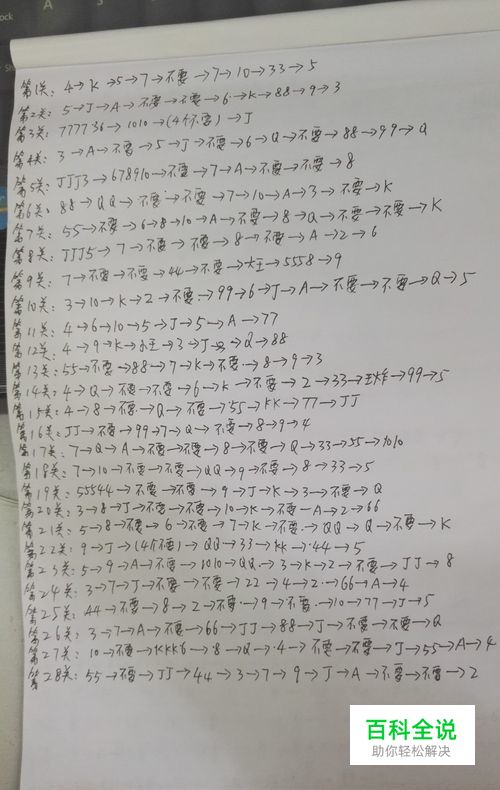 第1关: 4→K→5→7→不要→7→10→33→5
第2关: 5→J→A→不要→不要→6→K→88→9→3
第3关: 777736→1010→(4个不要)→J
第4关: 3→A→不要→5→J→不要→6→Q→不要→88→99→Q
第5关: JJJ3→678910→不要→7→A→不要→不要→8
第6关: 88→QQ→不要→不要→7→10→A→3→不要→K
第7关: 55→不要→6→8→10→A→不要→8→Q→不要→不要→K
第8关: JJJ5→7→不要→不要→8→不要→A→2→6
第9关: 7→不要→不要→44→不要→大王→5558→9
第10关: 3→10→K→2→不要→99→6→J→A→不要→不要→Q→5
第11关: 4→6→10→5→J→5→A→77
第12关: 4→9→K→小王→3→J→Q→88
第13关: 55→不要→88→7→K→不要→8→9→3
第14关: 4→Q→不要→不要→6→K→不要→2→33→王炸→99→5
第15关: 4→8→不要→Q→不要→55→KK→77→JJ
第16关: JJ→不要→99→7→Q→不要→8→9→4
第17关: 7→Q→A→不要→不要→8→不要→Q→33→55→1010
第18关: 7→10→不要→不要→QQ→9→不要→8→33→5
第19关: 55544→不要→不要→9→J→K→3→不要→Q
第20关: 3→8→J→不要→不要→10→K→不要→A→2→66
第21关: 5→8→不要→6→不要→7→K→不要→QQ→Q→不要→K
第22关: 9→J→(4个不要)→QQ→33→KK→44→5
第23关: 5→9→A→不要→1010→QQ→3→K→2→不要→JJ→8
第24关: 3→7→J→不要→不要→22→4→2→66→A→4
第25关: 44→不要→8→2→不要→9→不要→10→77→J→5
第26关: 3→7→A→不要→66→JJ→88→J→不要→不要→Q
第27关: 10→不要→KKK6→8→Q→4→不要→不要→J→55→A→4
第28关: 55→不要→JJ→44→3→7→9→J→A→不要→不要→2
百科全说
助你轻松解决